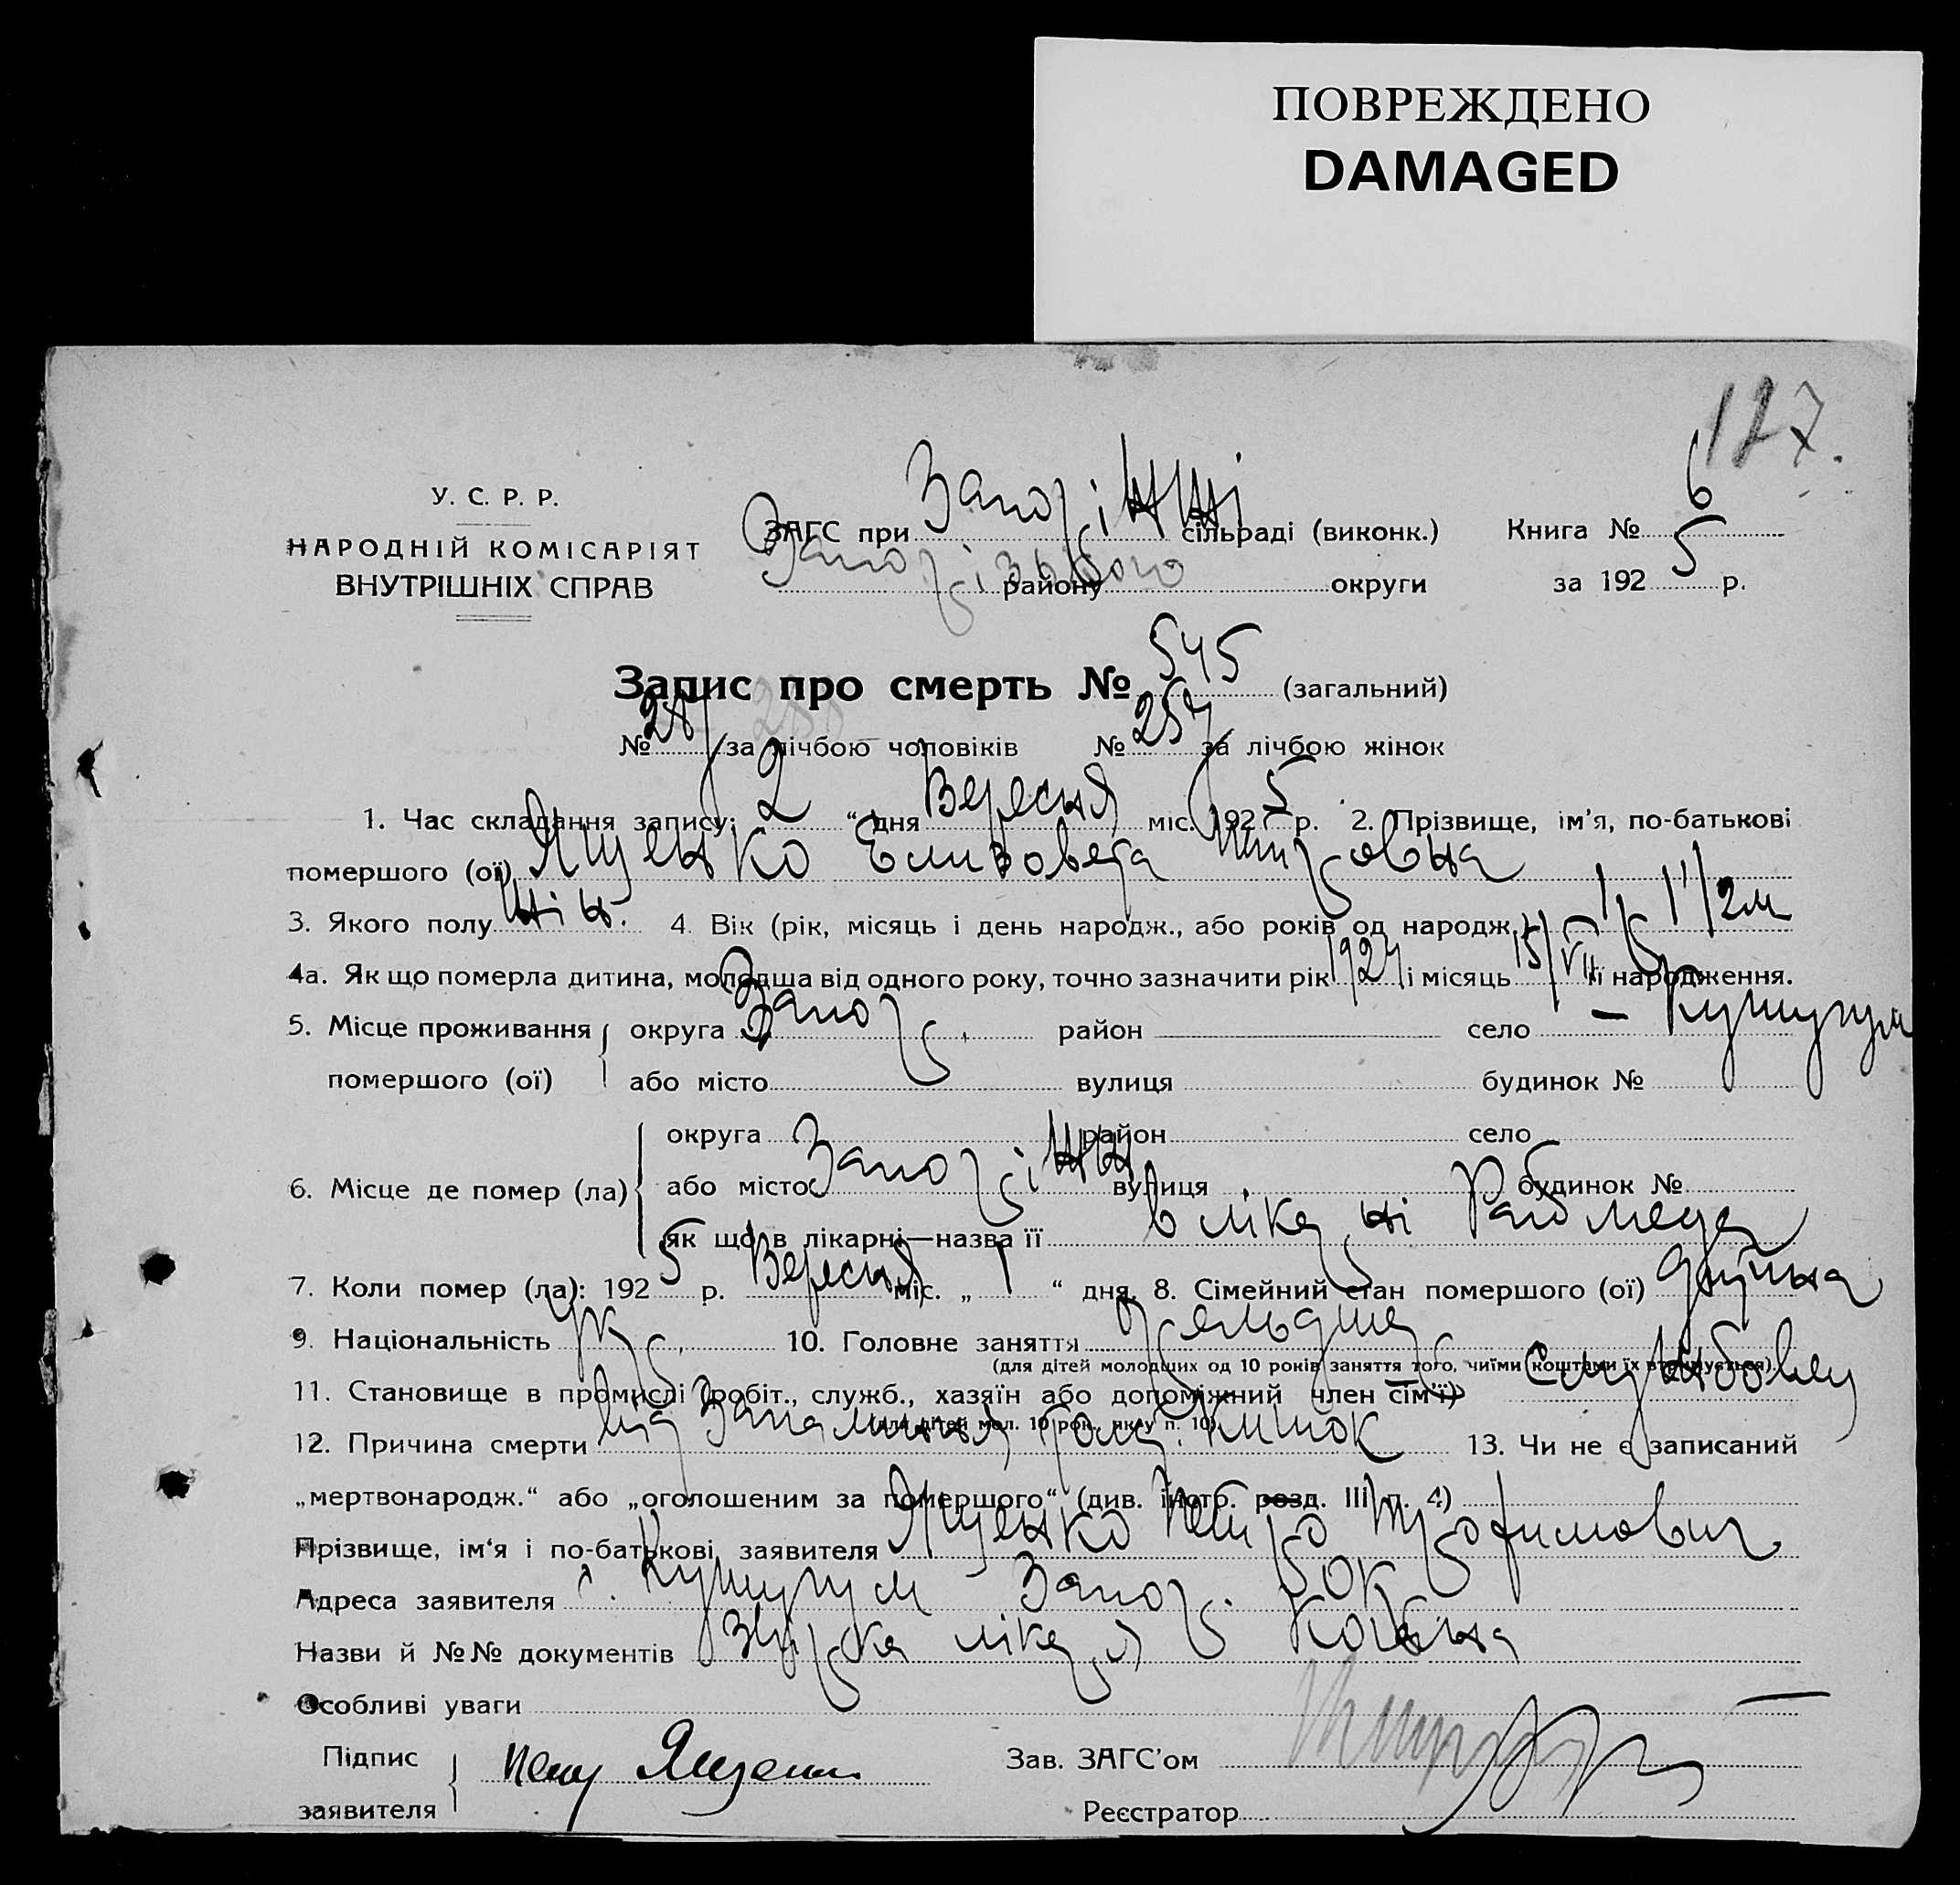 ПОВРЕЖДЕНО
DAMAGED
127.
У. С. Р. Р.
НАРОДНІЙ КОМІСАРІЯТ
ВНУТРІШНІХ СПРАВ
ЗАГС при Запоріжжі сільраді (виконк.) Книга № 6
Запорізького району округи за 1925 р.
Запис про смерть № 545 (загальний)
№ за лічбою чоловіків № 257 за лічбою жінок
1. Час складання запису: 2 “ дня Вересня міс. 1925 р. 2. Прізвище, ім’я, по-батькові
помершого (ої) Яценко Елизовета Петровна
3. Якого полу жін. 4. Вік (рік, місяць і день народж., або років од народж.) 1 р 1 1/2 м
4а. Як що померла дитина, молодша від одного року, точно зазначити рік 1924 і місяць 15/VII її народження.
5. Місце проживання округа Запор. район село – Кушугум
помершого (ої) або місто вулиця будинок №
округа район село
6. Місце де помер (ла) або місто Запоріжжя вулиця будинок №
як що в лікарні—назва її в лікарні Рабмеда
7. Коли помер (ла): 1925 р. Вересня міс. „ 1 “ дня. 8. Сімейний стан помершого (ої) дитина
9. Національність укр. 10. Головне заняття Фельдшер
(для дітей молодших од 10 років заняття того, чиїми коштами їх втримується)
11. Становище в промислі (робіт., служб., хазяїн або допоміжний член сім’ї) Службовец
(для дітей мол. 10 рок. як у п. 10)
12. Причина смерти від Запалиння кишок 13. Чи не є записаний
„мертвонародж.“ або „оголошеним за помершого“ (див. інстр. розд. III п. 4)
Прізвище, ім‘я і по-батькові заявителя Яценко Петро Трофимович
Адреса заявителя с. Кушугум Запор. Ок
Назви й №№ документів лікаря
Особливі уваги —
Підпис Петр Яценко Зав. ЗАГС’ом
заявителя Реєстратор